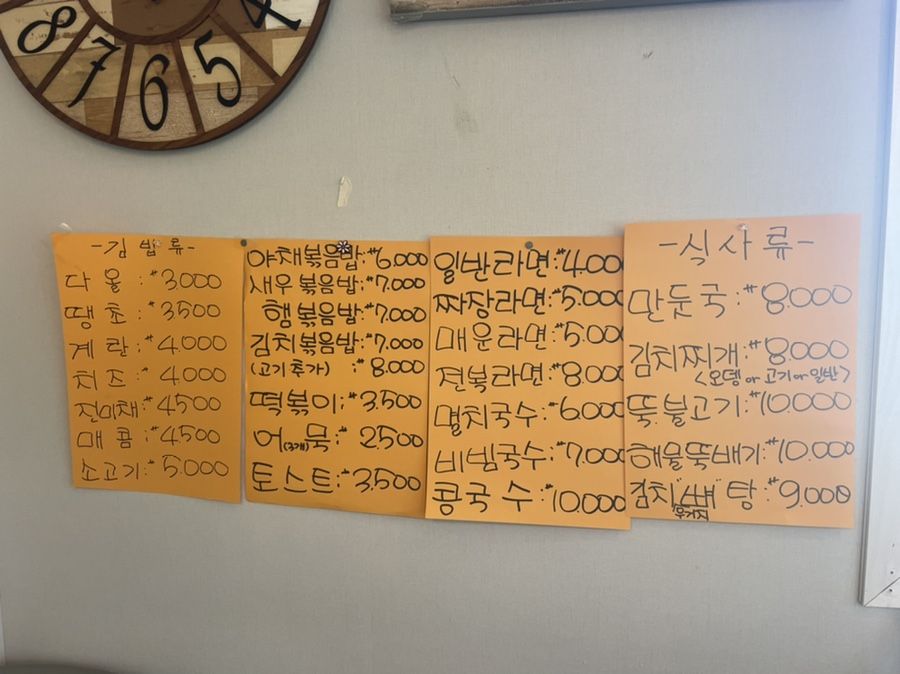 8 7 6 5 4
-김밥류-
다올 : ₩3000
땡초 : ₩3500
계란 : ₩4.000
치즈 : ₩4000
진미채 : ₩4500
매콤 : ₩4500
소고기 : ₩5.000
야채볶음밥 : ₩6.000
새우볶음밥 : ₩7.000
햄볶음밥 : ₩7.000
김치볶음밥 : ₩7.000
(고기추가) : ₩8.000
떡볶이 : ₩3.500
어(3개)묵 : ₩2500
토스트 : ₩3.500
일반라면 : ₩4.000
짜장라면 : ₩5.000
매운라면 : ₩5.000
전복라면 : ₩8.000
멸치국수 : ₩6.000
비빔국수 : ₩7.000
콩국수 : ₩10.000
-식사류-
만둣국 : ₩8.000
김치찌개 : ₩8.000
<오뎅 or 고기 or 일반>
뚝.불고기 : ₩10.000
해물뚝배기 : ₩10.000
김치"뼈"탕 : ₩9.000